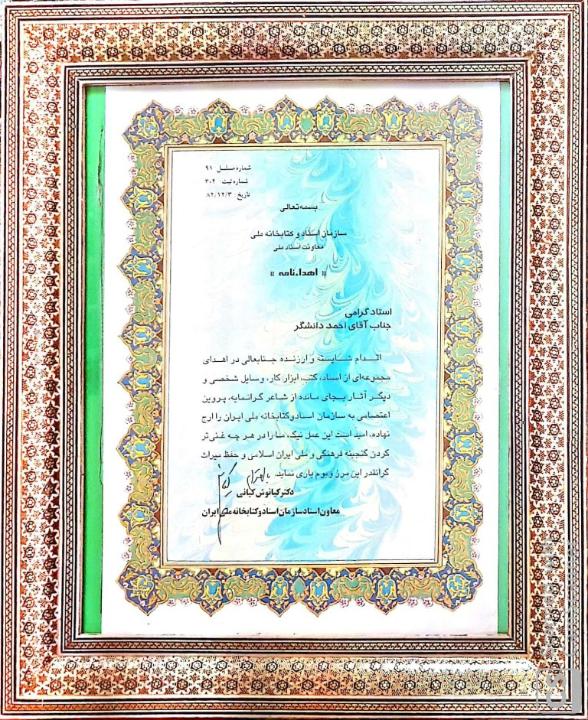 شماره مسلسل ۹۱
شماره ثبت: ۳۰۲
تاریخ: ۸۲/۱۲/۳
بسمه‌تعالی
سازمان اسناد و کتابخانه ملی
معاونت اسناد ملی
« اهداءنامه »
استاد گرامی
جناب آقای احمد دانشگر
اقدام شایسته و ارزنده جنابعالی در اهدای
مجموعه‌ای از اسناد، کتب، ابزار کار، وسایل شخصی و
دیگر آثار بجای مانده از شاعر گرانمایه، پروین
اعتصامی به سازمان اسناد و کتابخانه ملی ایران را ارج
نهاده، امید است این عمل نیک، ما را در هر چه غنی‌تر
کردن گنجینه فرهنگی و ملی ایران اسلامی و حفظ میراث
گرانقدر این مرز و بوم یاری نماید.
دکتر کیانوش کیانی
معاون اسناد سازمان اسناد و کتابخانه ملی ایران